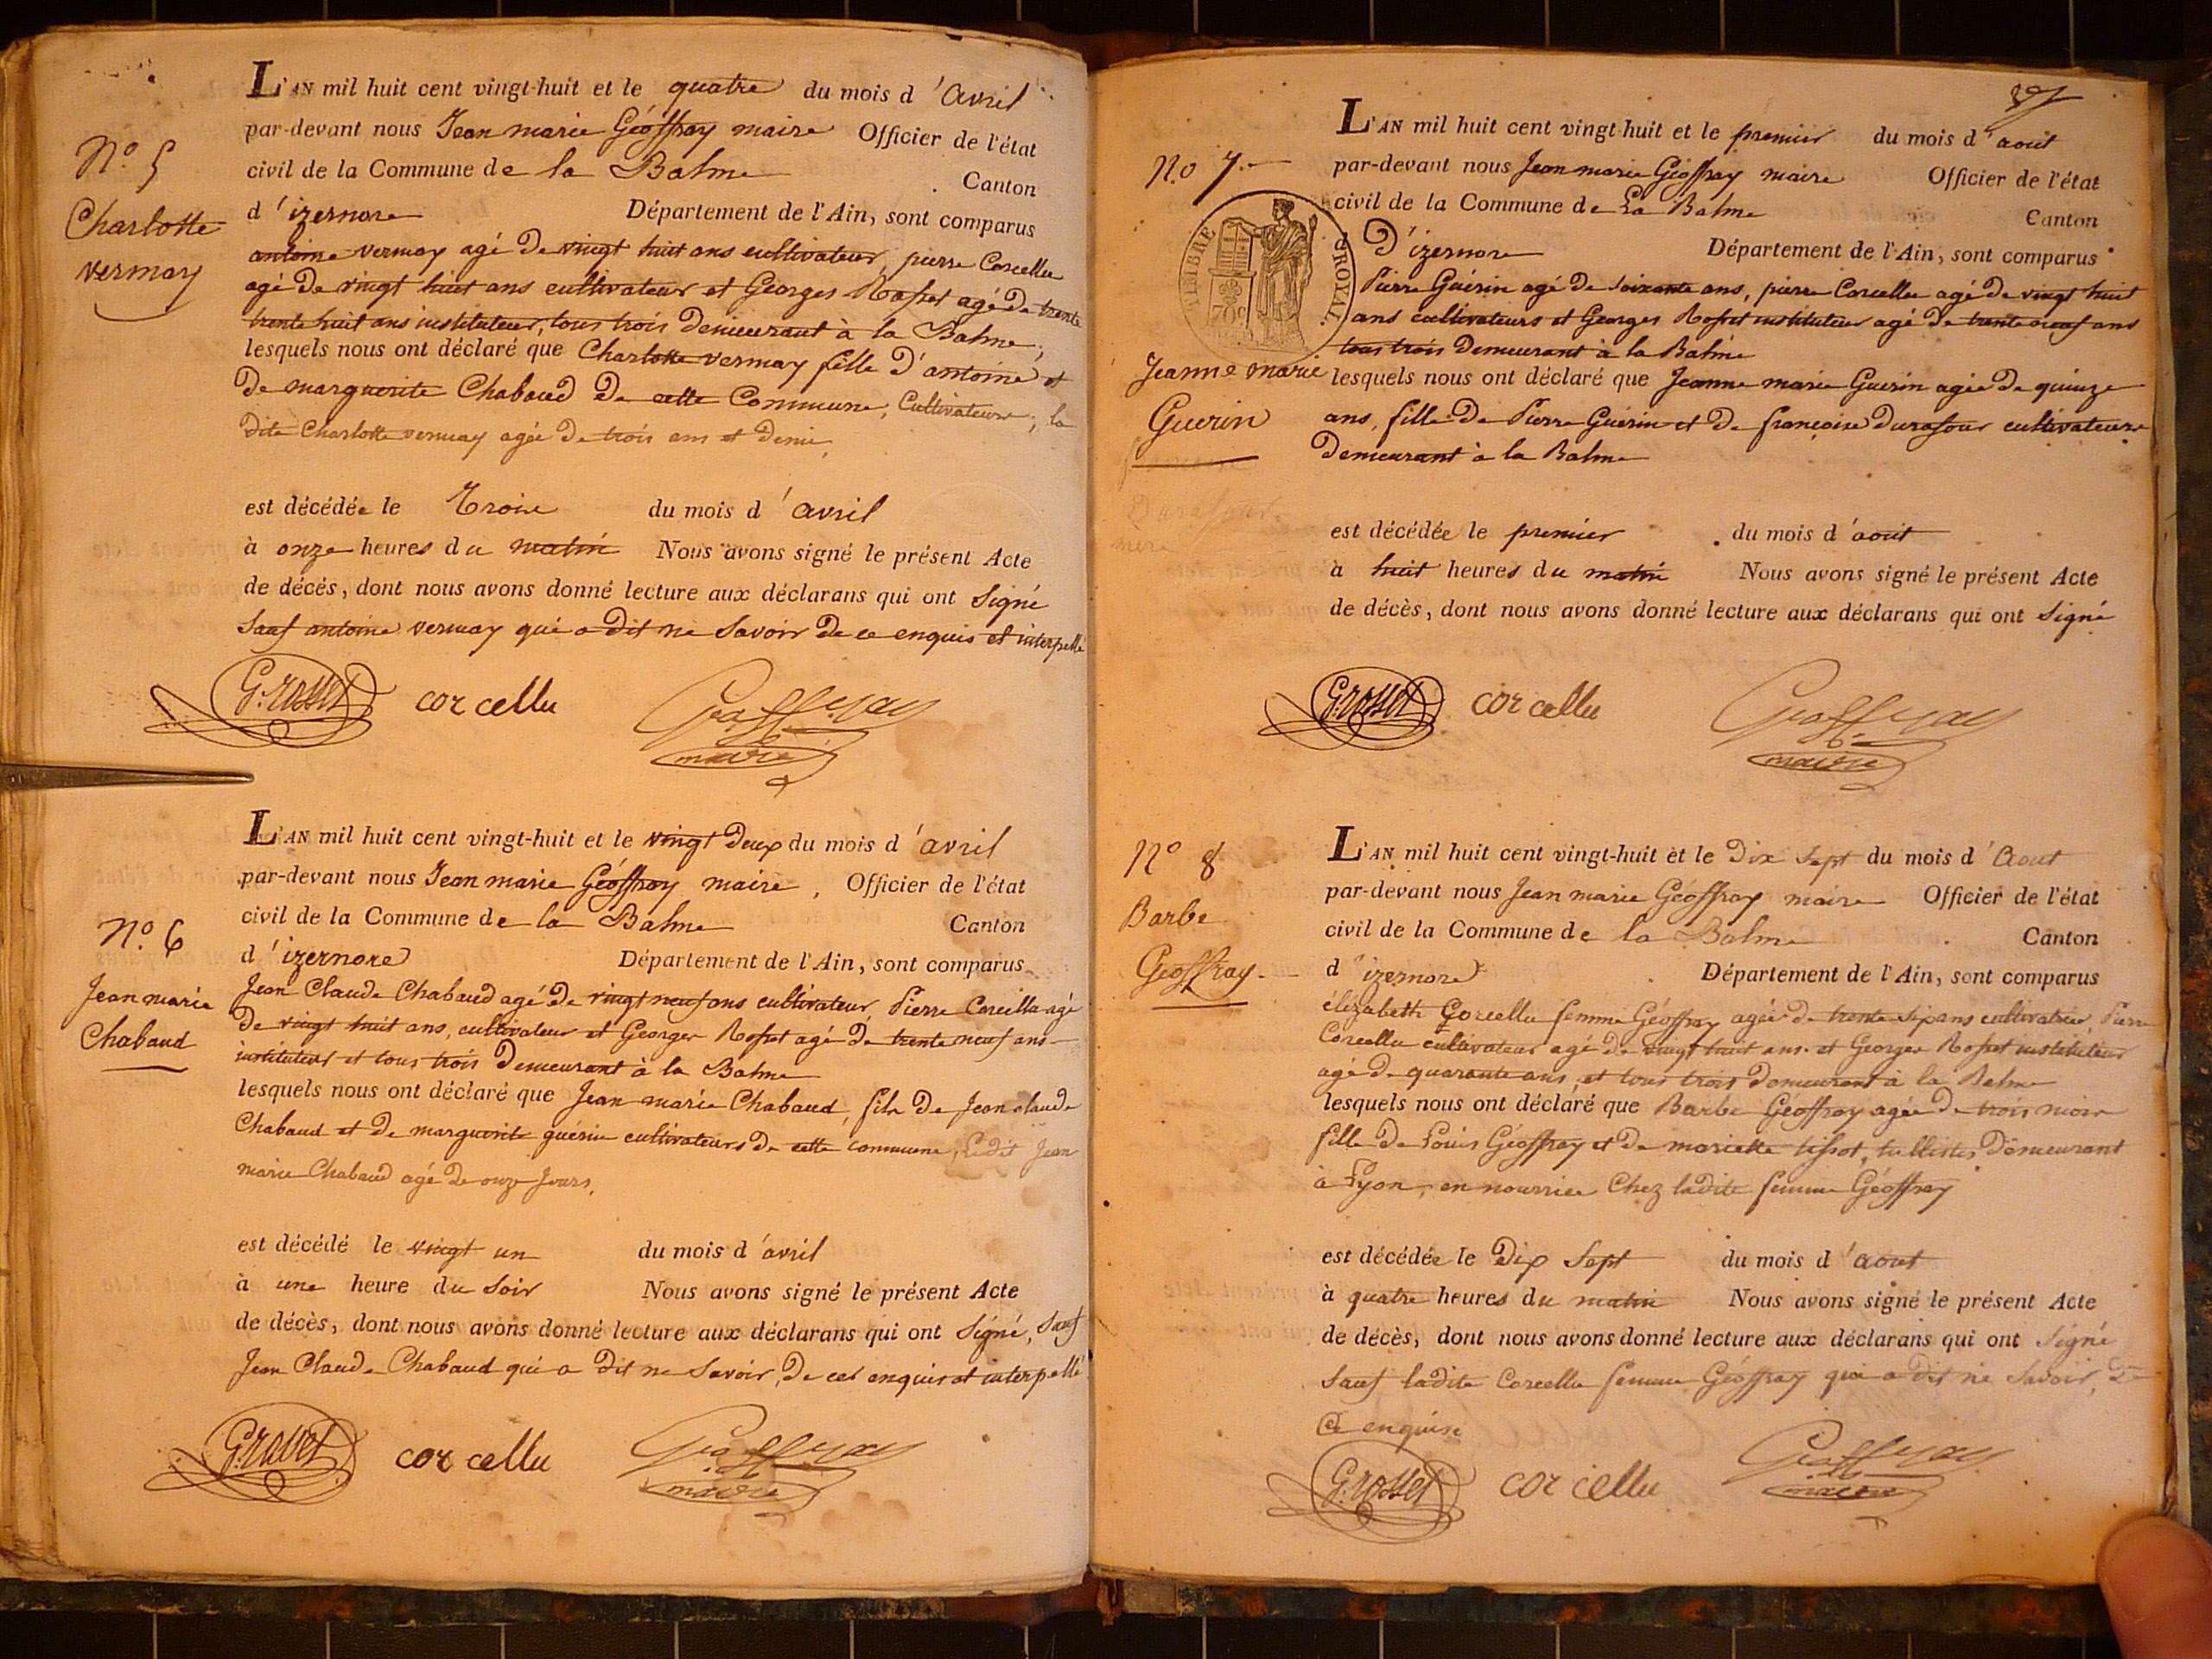 L'AN mil huit cent vingt-huit et le quatre du mois d'avril
par-devant nous Jean marie Géoffray maire Officier de l'état
civil de la Commune de la Balme Canton
d'izernore Département de l'Ain, sont comparus
antoine vermay agé de vingt huit ans cultivateur, pierre Corcellu
agé de vingt huit ans cultivateur et Georges Rosset agé de trente
trente huit ans instituteur, tous trois demeurant à la Balme;
lesquels nous ont déclaré que Charlotte vermay fille d'antoine et
de marguerite Chabaud de cette Commune, Cultivateurs; la
dite Charlotte vermay agée de trois ans et demi,
est décédée le Trois du mois d'avril
à onze heures du matin Nous avons signé le présent Acte
de décès, dont nous avons donné lecture aux déclarans qui ont signé
sauf antoine vermay qui a dit ne savoir de ce enquis et interpellé
N.o 5
Charlotte
vermay
G. rosset corcellu Geoffray
maire
L'AN mil huit cent vingt-huit et le vingt deux du mois d'avril
par-devant nous Jean marie Géoffray maire, Officier de l'état
civil de la Commune de la Balme Canton
d'izernore Département de l'Ain, sont comparus
Jean Claude Chabaud agé de vingt neuf ans cultivateur, Pierre Corcellu agé
de vingt huit ans, cultivateur et Georges Rosset agé de trente neuf ans
instituteur et tous trois demeurant à la Balme
lesquels nous ont déclaré que Jean marie Chabaud, fils de Jean claude
Chabaud et de marguerite guérin cultivateurs de cette commune, Ledit Jean
marie Chabaud agé de onze Jours,
est décédé le vingt un du mois d'avril
à une heure du soir Nous avons signé le présent Acte
de décès, dont nous avons donné lecture aux déclarans qui ont signé, sauf
Jean Claude Chabaud qui a dit ne savoir, de ce enquis et interpellé
N.o 6
Jean marie
Chabaud
G. rosset corcellu Geoffray
maire
L'AN mil huit cent vingt-huit et le premier du mois d'aout
par-devant nous Jean marie Géoffray maire Officier de l'état
civil de la Commune de La Balme Canton
D'izernore Département de l'Ain, sont comparus
Pierre Guérin agé de soixante ans, pierre Corcellu agé de vingt huit
ans cultivateurs et Georges Rosset instituteur agé de trente neuf ans
tous trois demeurant à la Balme
lesquels nous ont déclaré que Jeanne marie Guerin agée de quinze
ans, fille de Pierre Guérin et de françoise Durafour cultivateurs
demeurant à la Balme
est décédée le premier du mois d'aout
à huit heures du matin Nous avons signé le présent Acte
de décès, dont nous avons donné lecture aux déclarans qui ont signé
N.o 7.
TIMBRE ROYAL
70c
Jeanne marie
Guerin
G. rosset corcellu Geoffray
maire
L'AN mil huit cent vingt-huit et le Dix sept du mois d'Aout
par-devant nous Jean marie Géoffray maire Officier de l'état
civil de la Commune de la Balme Canton
d'izernore Département de l'Ain, sont comparus
élizabeth Corcellu femme Géoffray agée de trente six ans cultivatrice, Pierre
Corcellu cultivateur agé de vingt huit ans et Georges Rosset instituteur
agé de quarante ans, et tous trois demeurant à la Balme
lesquels nous ont déclaré que Barbe Géoffray agée de trois mois
fille de Louis Géoffray et de mariette tissot, tullistes, Demeurant
à Lyon, en nourrice Chez ladite femme Géoffray
est décédée le Dix sept du mois d'aout
à quatre heures du matin Nous avons signé le présent Acte
de décès, dont nous avons donné lecture aux déclarans qui ont signé
sauf ladite Corcellu femme Géoffray qui a dit ne savoir, de
ce enquise
No 8
Barbe
Geoffray.
G. rosset corcellu Geoffray
maire